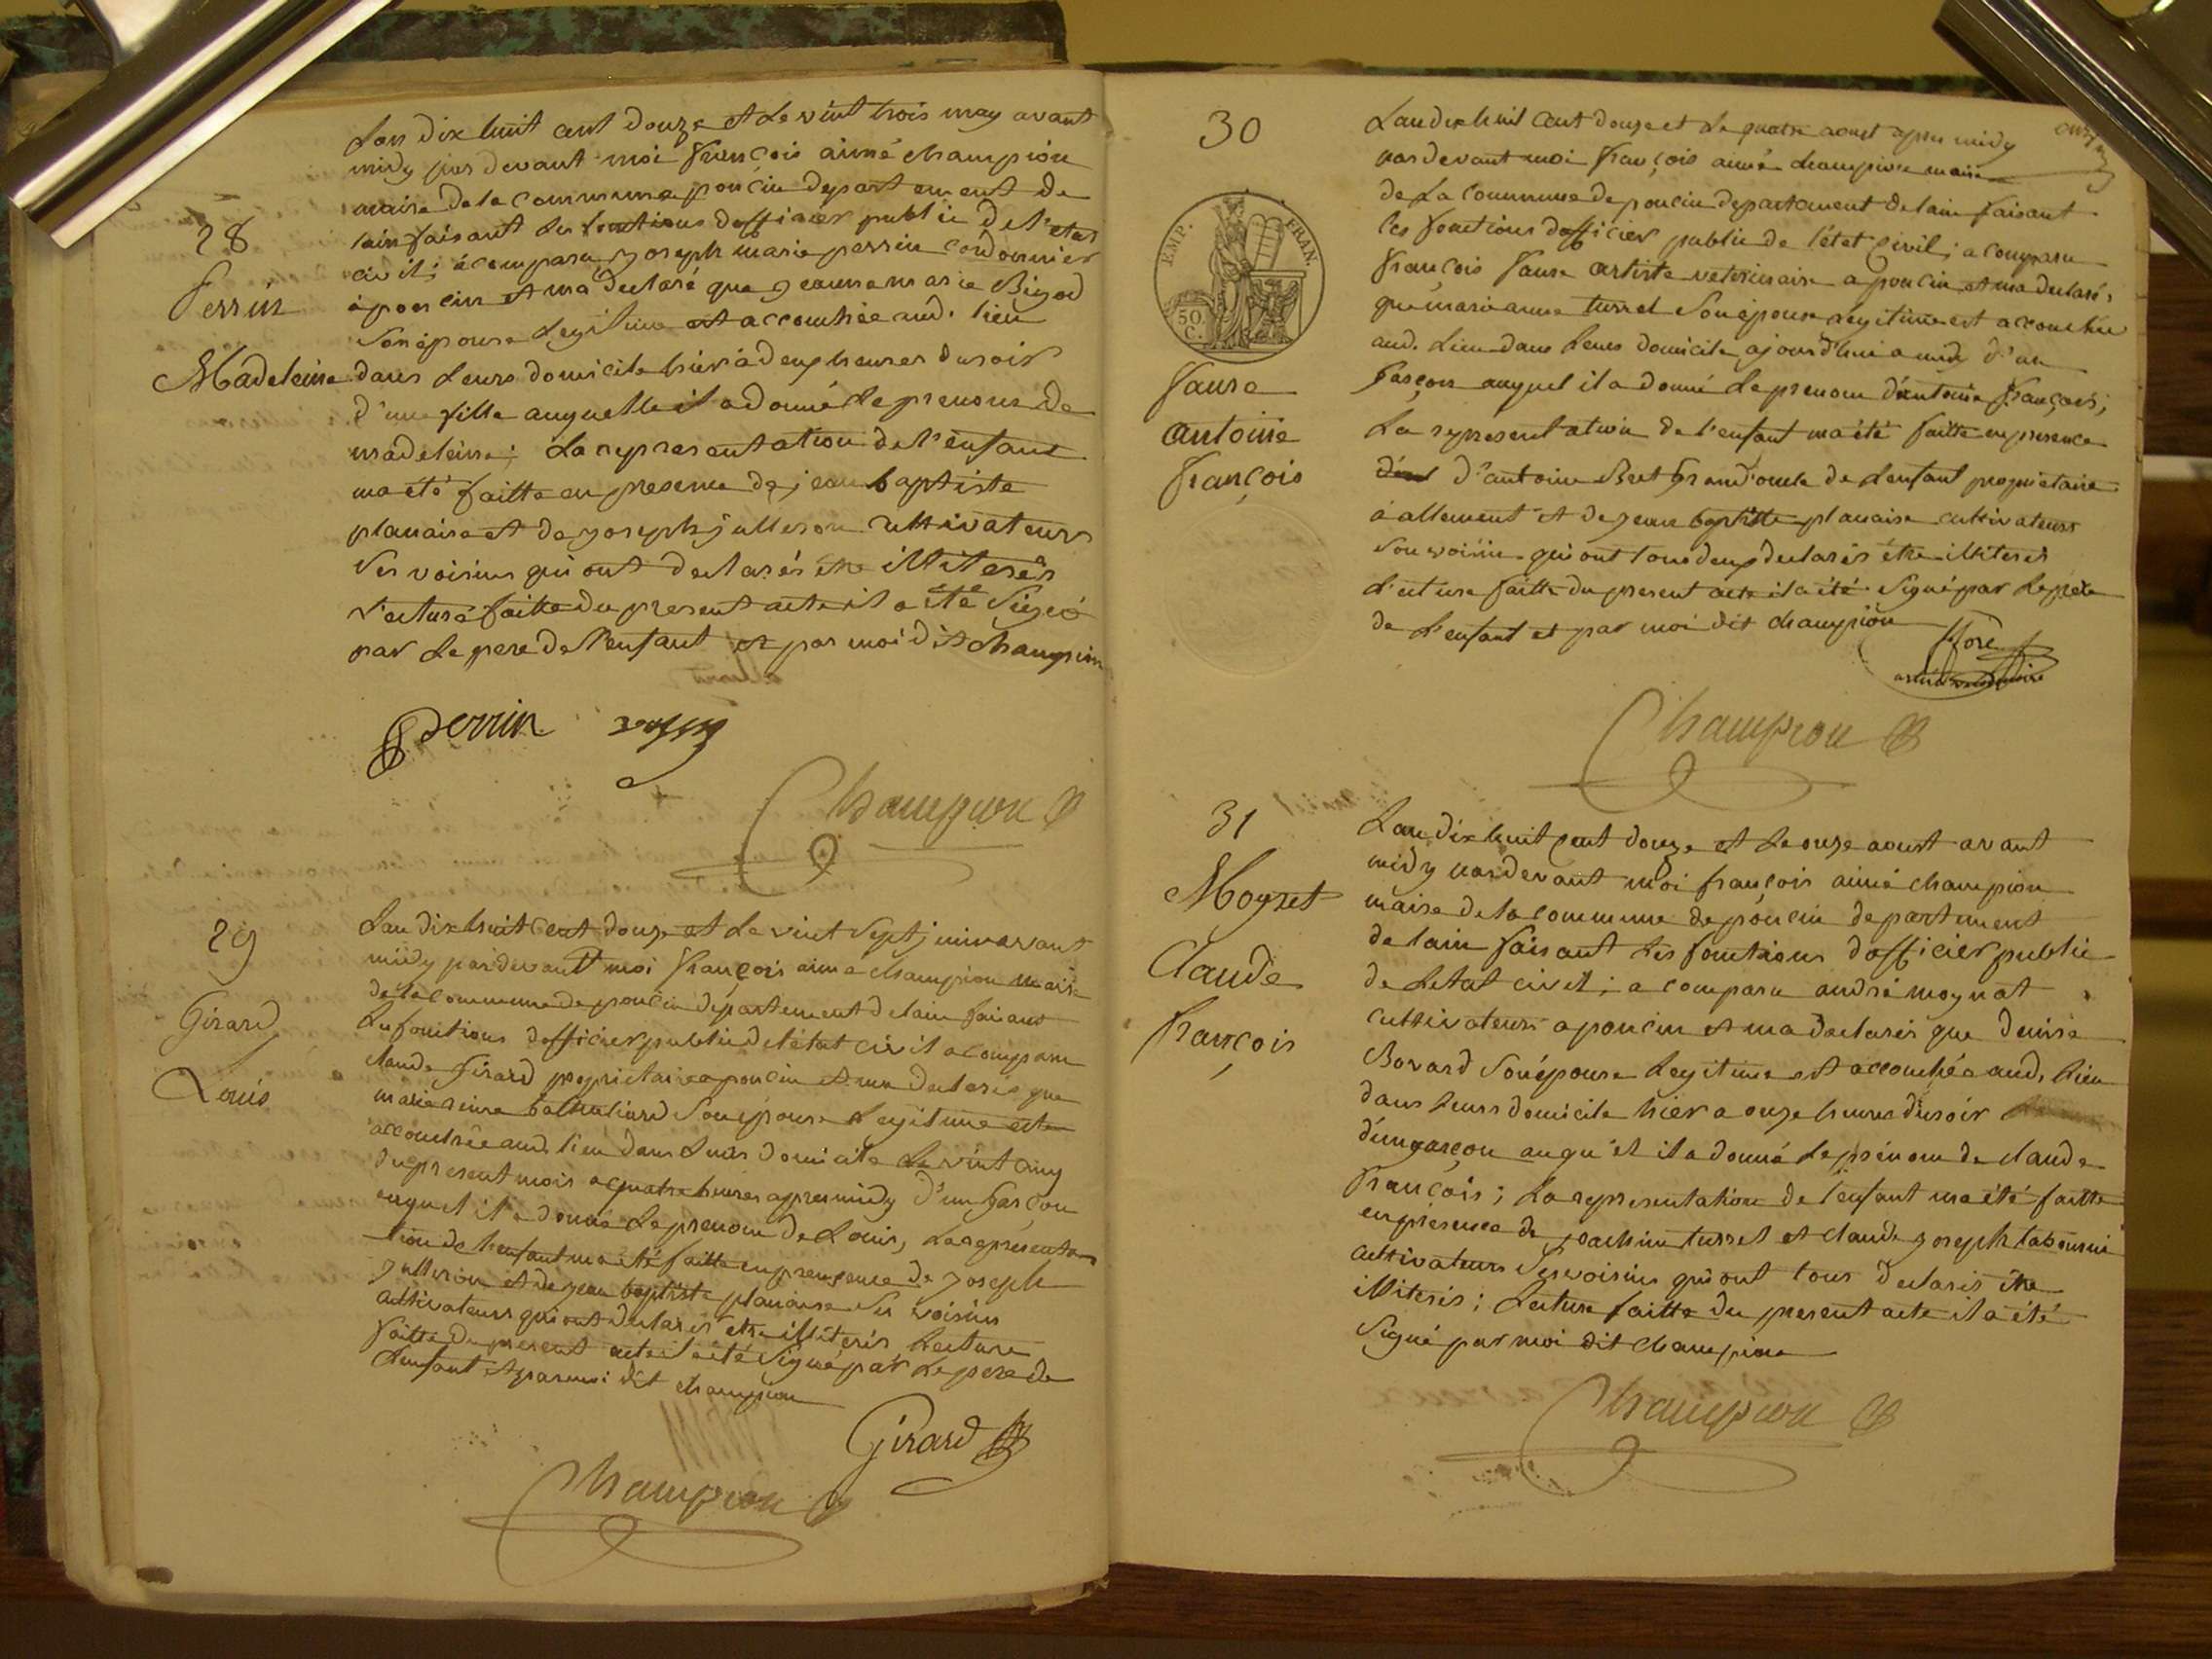 28
Perrin
Madeleine
Lan dix huit cent douze et le vint trois may avant
midy par devant moi françois aimé champion
maire de la commune poncin departement de
lain faisant les fonctions dofficier public de l'etat
civil; a comparu joseph marie perrin cordonnier
a poncin et ma declaré que jeanne marie Bigod
son épouse legitime est accouchée aud. lieu
dans leurs domicile hier à deux heures du soir
d'une fille auquelle il a donné le prenom de
madeleine; La representation de l'enfant
ma été faitte en presence de jean baptiste
planaise et de joseph julleron cultivateurs
ses voisins qui ont declarés être illiterés
Lecture faitte du present acte il a été signé
par le pere de l'enfant et par moi dit champion
Perrin
Champion
29
Girard
Louis
Lan dix huit cent douze et le vint sept juin avant
midy pardevant moi françois aimé champion maire
de la commune de poncin departement de lain faisant
les fonctions dofficier public de l'état civil a comparu
claude girard proprietaire a poncin et ma declaré que
marie reine son épouse legitime est
accouchée aud. lieu dans leurs domicile le vint cinq
du present mois a quatre heures apres midy d'un garçon
auquel il a donné le prenom de Louis, La representa
tion de l'enfant ma été faitte en presence de joseph
julleron et de jean baptiste planaise ses voisins
cultivateurs qui ont declarés etre illiterés Lecture
faitte du present acte il a été signé par le pere de
L'enfant et par moi dit champion
Girard
Champion
30
EMP. FRAN.
50 C.
Faure
antoine
François
Lan dix huit cent douze et le quatre aoust apres midy
par devant moi françois aimé champion maire
de la commune de poncin departement de lain faisant
les fonctions dofficier public de l'état civil; a comparu
françois faure artiste veterinaire a poncin et ma declaré;
que marianne turrel son épouse legitime est accouchée
aud. lieu dans leurs domicile ajourd'hui a midy d'un
garçon auquel il a donné le prenom d'antoine françois;
La representation de l'enfant ma été faitte en presence
d'antoine Bret grand'oncle de l'enfant proprietaire
à allement et de jean baptiste planaise cultivateurs
son voisin qui ont tous deux declarés être illiterés
Lecture faitte du present acte il a été signé par le père
de l'enfant et par moi dit champion
Champion
31
Moynet
Claude
François
Lan dix huit cent douze et le onze aoust avant
midy pardevant moi françois aimé champion
maire de la commune de poncin departement
de lain faisant les fonctions dofficier public
de letat civil; a comparu andré moynat
cultivateurs a poncin et ma declarés que denise
Bovard son épouse legitime est accouchée aud. lieu
dans leurs domicile hier a onze heures du soir
d'un garçon auqu'el il a donné le prénom de claude
François; La representation de l'enfant ma été faitte
en présence de joachim turrel et claude joseph
cultivateurs ses voisins qui ont tous declarés être
illiterés; Lecture faitte du present acte il a été
signé par moi dit champion
Champion